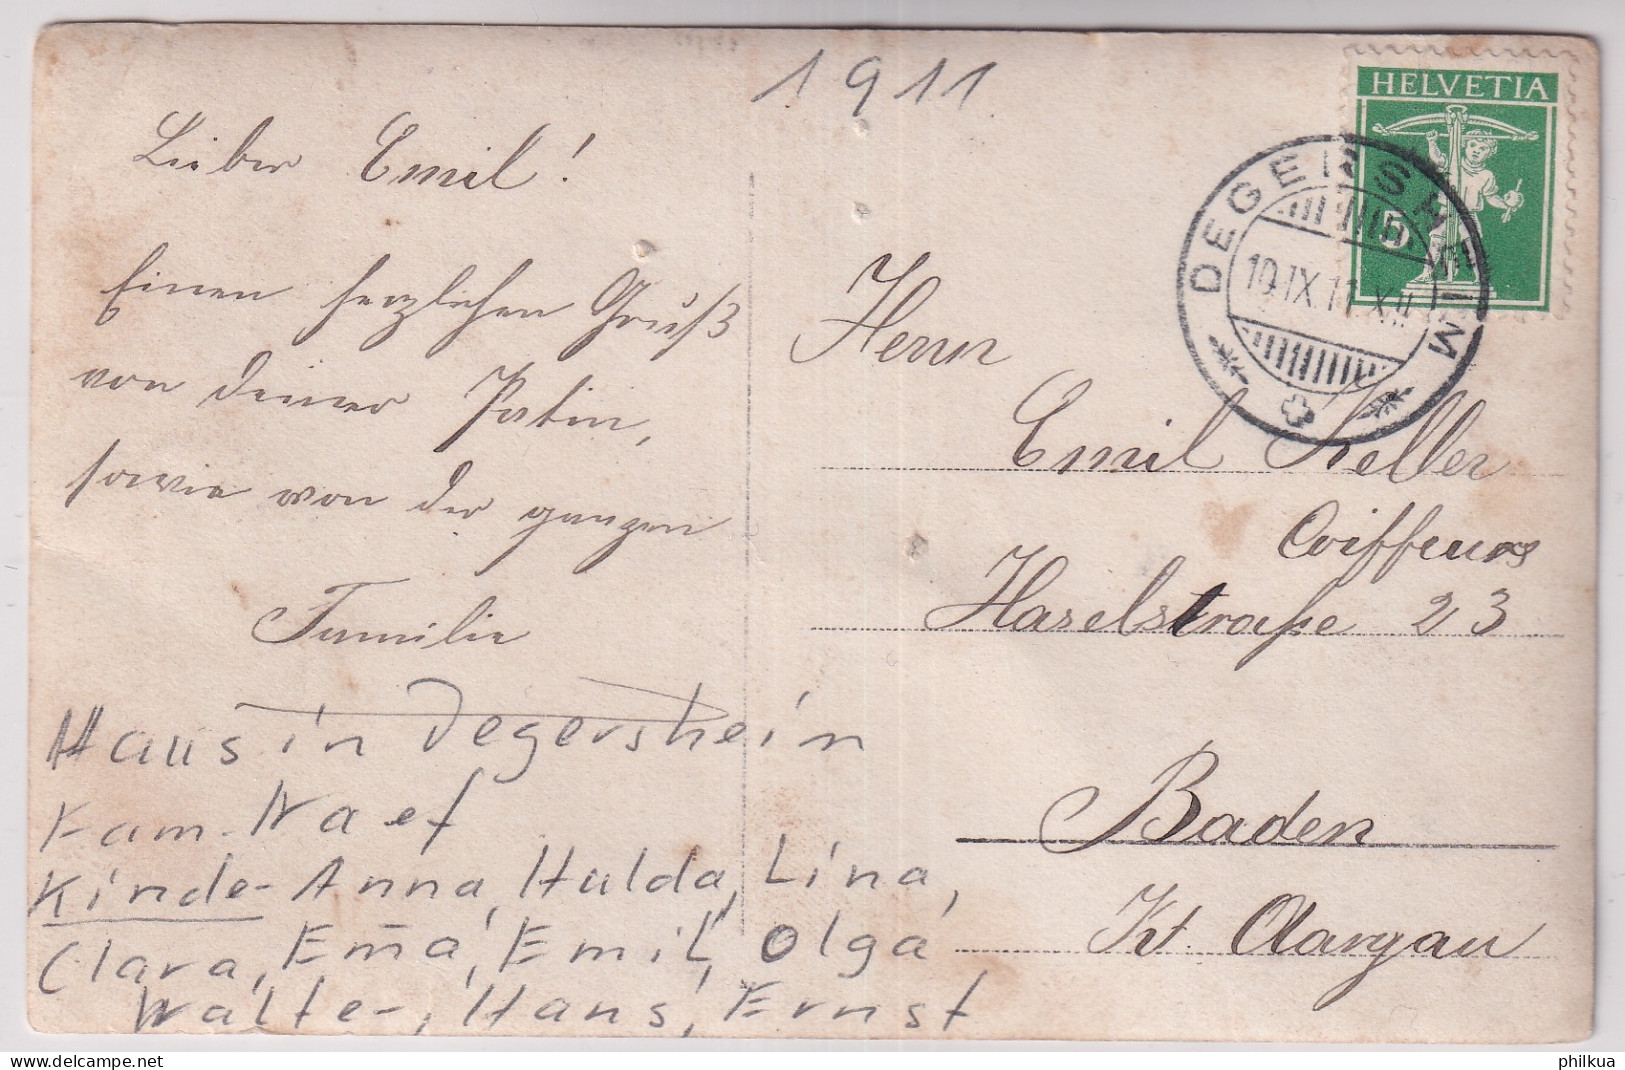 1911
Lieber Emil!
Einen herzlichen Gruß
von deiner Patin,
sowie von der ganzen
Familie
Haus in Degersheim
Fam. Naef
Kinder Anna, Hulda, Lina,
Clara, Em̄a, Emil, Olga
Walter, Hans, Ernst
HELVETIA
5
DEGERSHEIM
10.IX.11.XII
Herrn
Emil Keller
Coiffeurs
Haselstraße 23
Baden
Kt. Aargau
philkua.delcampe.net
philkua